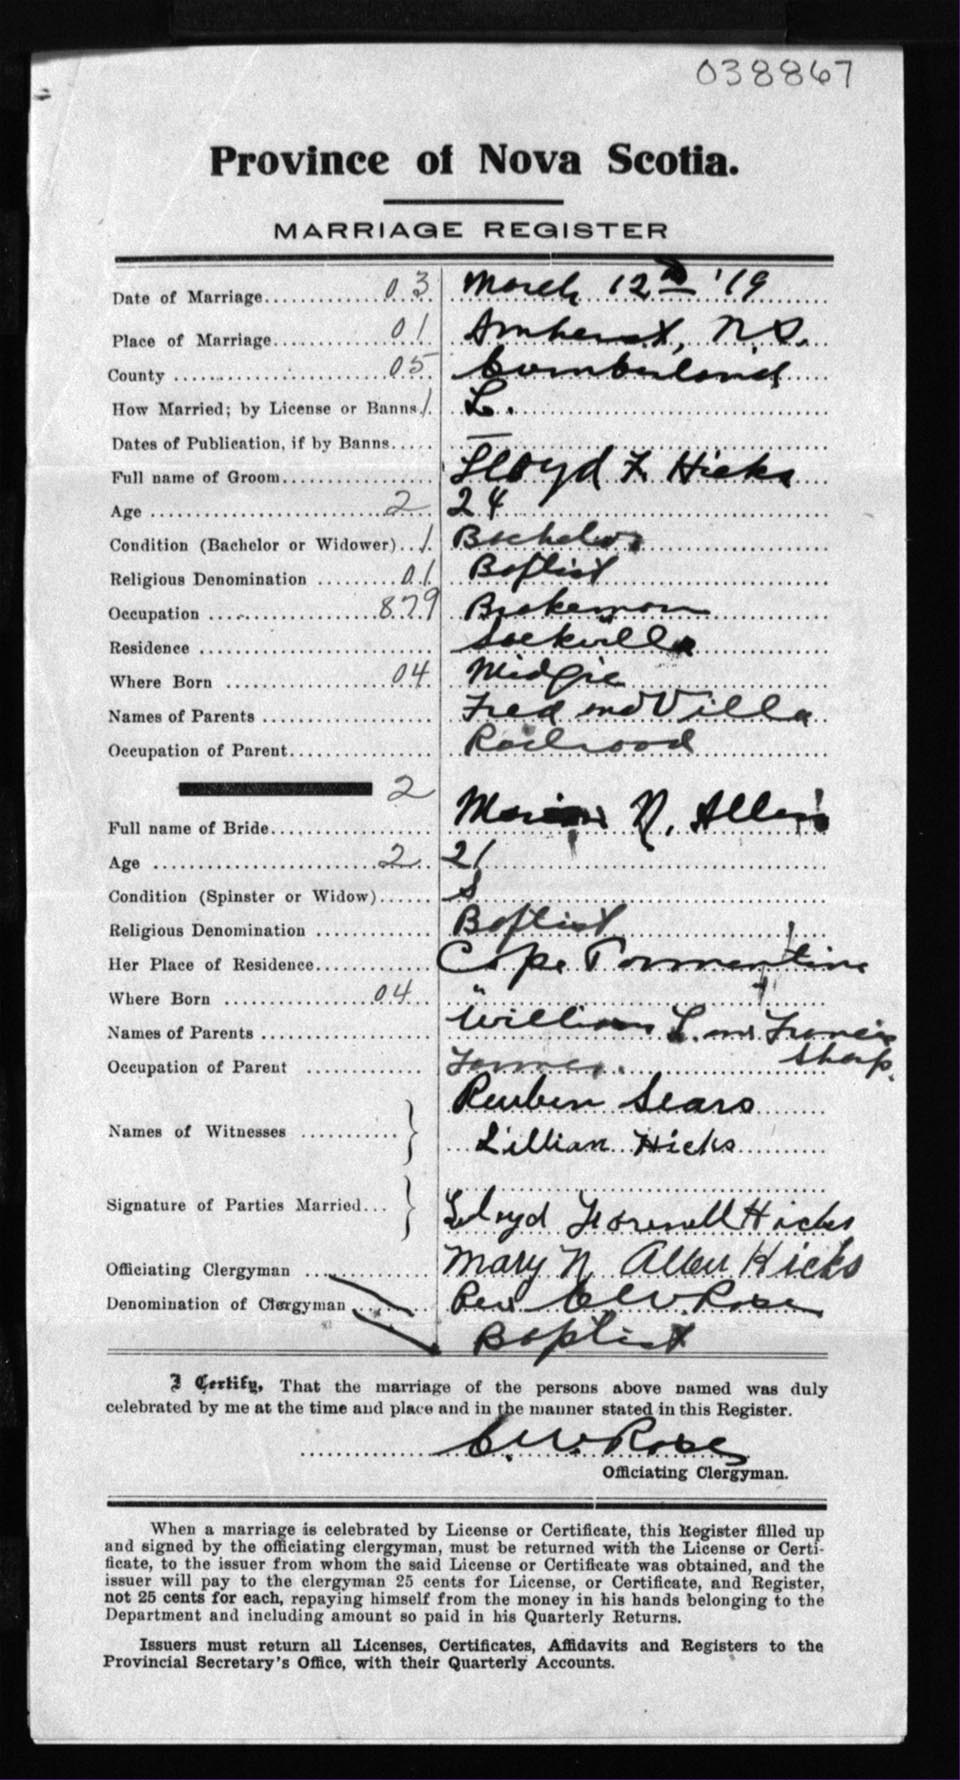 038867
Province of Nova Scotia.
MARRIAGE REGISTER
Date of Marriage 03 March 12th '19
Place of Marriage 01 Amherst, N.S.
County 05 Cumberland
How Married; by License or Banns 1 L.
Dates of Publication, if by Banns —
Full name of Groom Lloyd F. Hicks
Age 2 24
Condition (Bachelor or Widower) 1 Bachelor
Religious Denomination 01 Baptist
Occupation 879 Brakeman
Residence Sackville
Where Born 04 Midgic
Names of Parents Fred and Villa
Occupation of Parent Railroad
2
Full name of Bride N. Allen
Age 2 21
Condition (Spinster or Widow) S
Religious Denomination Baptist
Her Place of Residence Cape Tormentine
Where Born 04 "
Names of Parents William L. and Francis
Sharp.
Occupation of Parent Farmer.
Names of Witnesses Reuben Sears
Lillian Hicks
Signature of Parties Married Lloyd Hicks
Mary N Allen Hicks
Officiating Clergyman Rev C.W. Rose
Denomination of Clergyman Baptist
I Certify, That the marriage of the persons above named was duly
celebrated by me at the time and place and in the manner stated in this Register.
C.W. Rose
Officiating Clergyman.
When a marriage is celebrated by License or Certificate, this Register filled up
and signed by the officiating clergyman, must be returned with the License or Certi-
ficate, to the issuer from whom the said License or Certificate was obtained, and the
issuer will pay to the clergyman 25 cents for License, or Certificate, and Register,
not 25 cents for each, repaying himself from the money in his hands belonging to the
Department and including amount so paid in his Quarterly Returns.
Issuers must return all Licenses, Certificates, Affidavits and Registers to the
Provincial Secretary's Office, with their Quarterly Accounts.